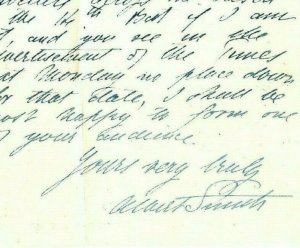 the 14th But if I am
and you see in the
vertisement of the Times
at Monday no place down
for that date, I shall be
most happy to form one
of your audience.
Yours very truly
Albert Smith